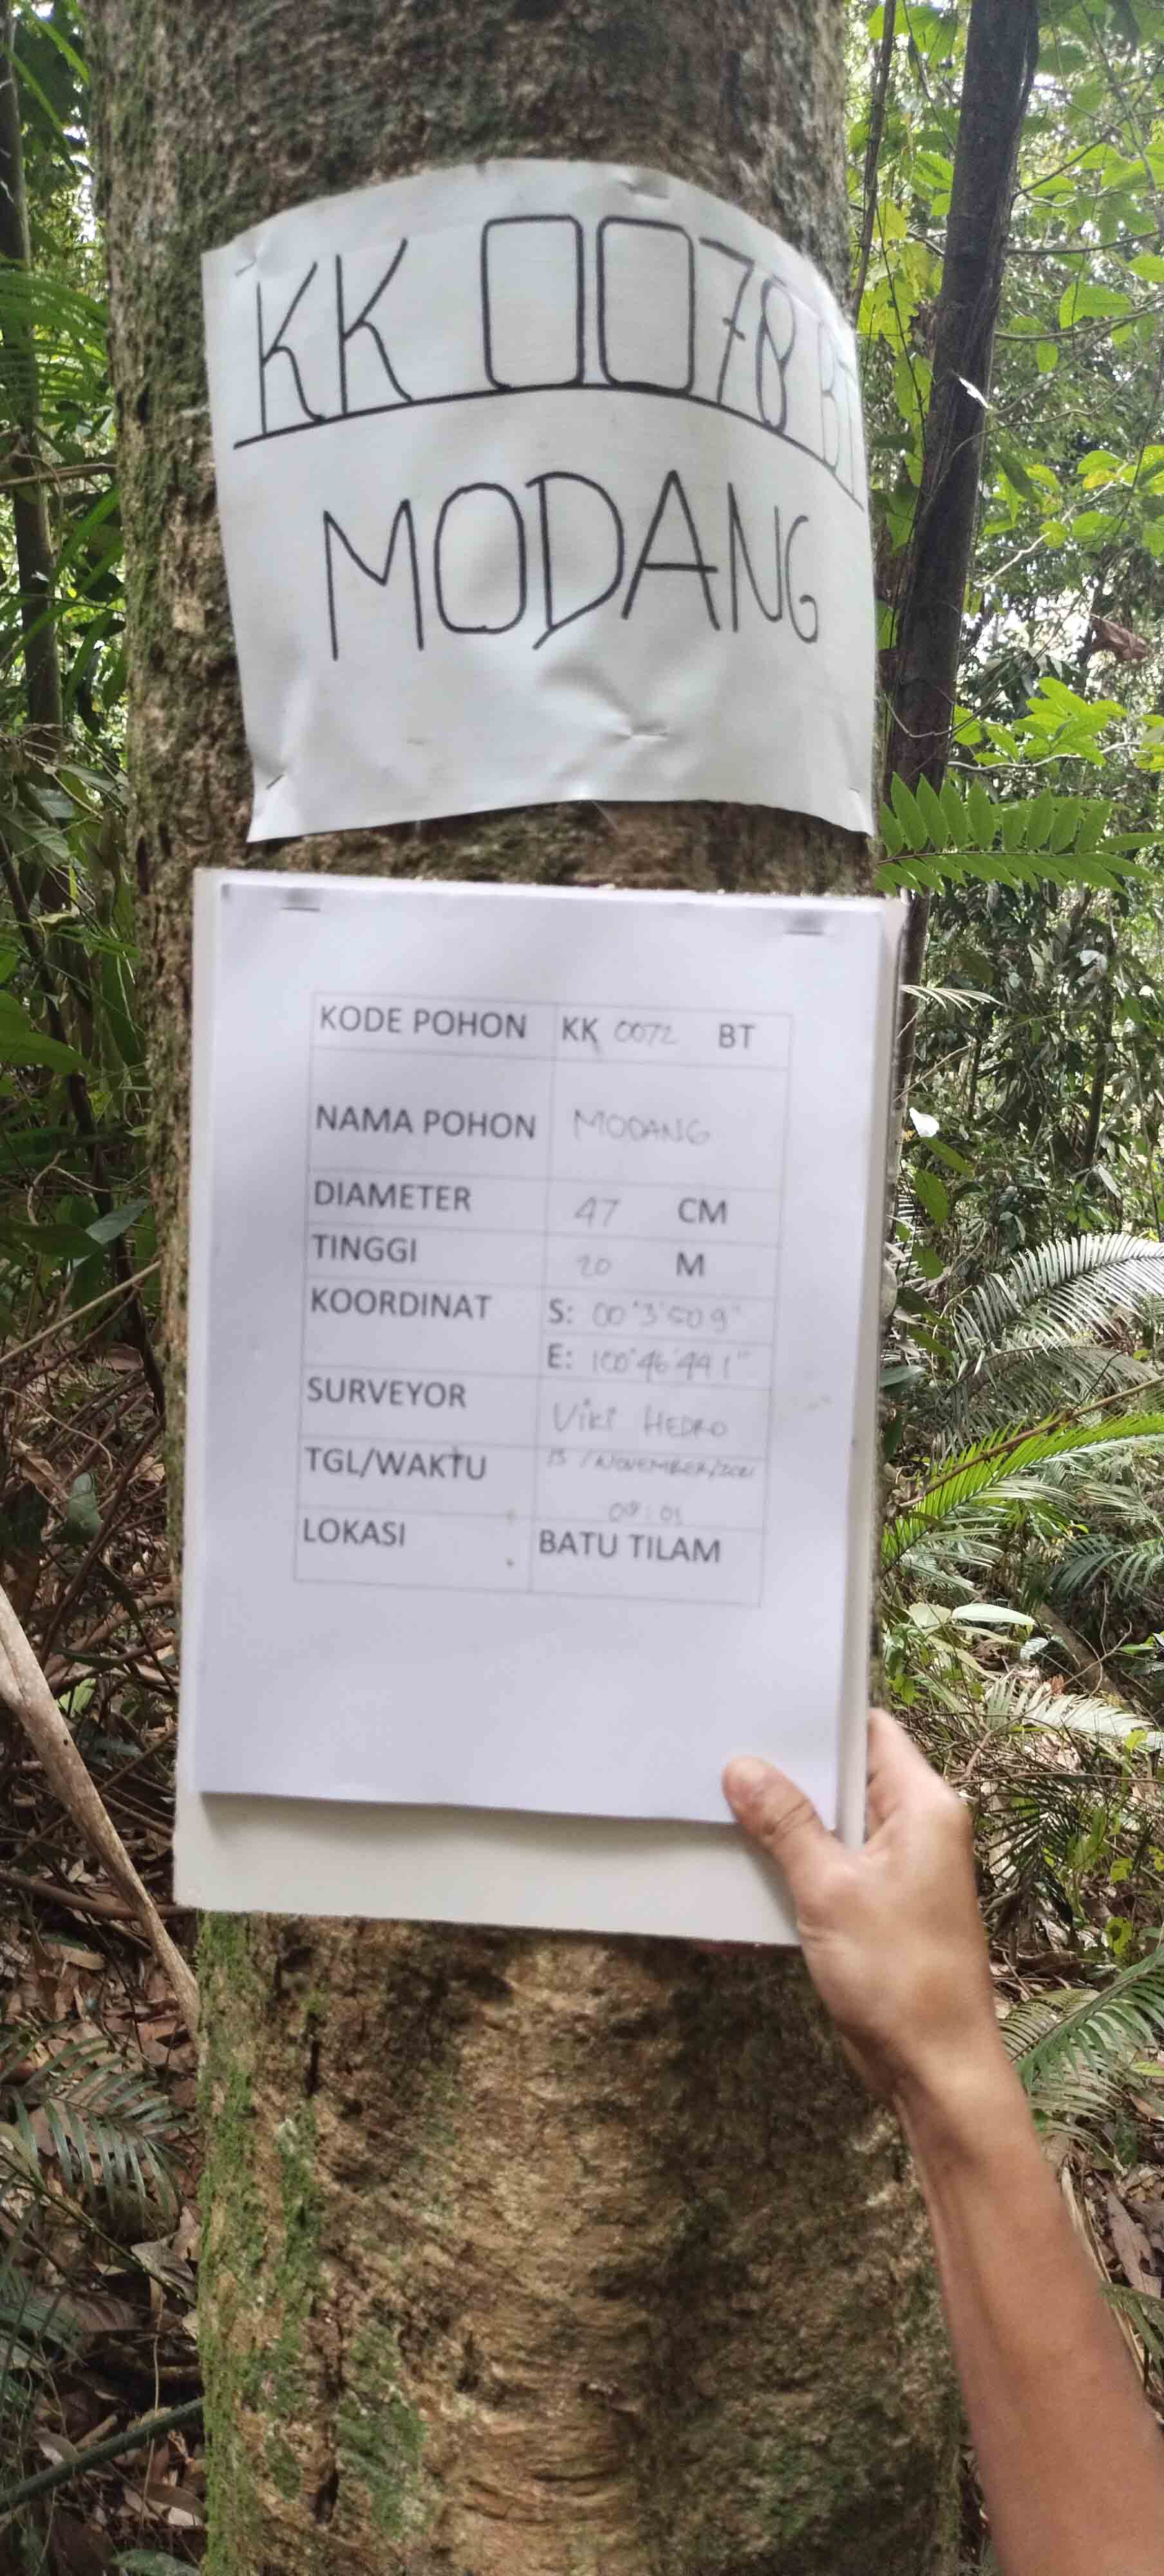 KK 0078 BT
MODANG
KODE POHON KK 0072 BT
NAMA POHON MODANG
DIAMETER 47 CM
TINGGI 20 M
KOORDINAT S: 00°3'50.9"
E: 100°46'44.1"
SURVEYOR Viki HEDRO
TGL/WAKTU 13 / NOVEMBER/2021
09:01
LOKASI BATU TILAM